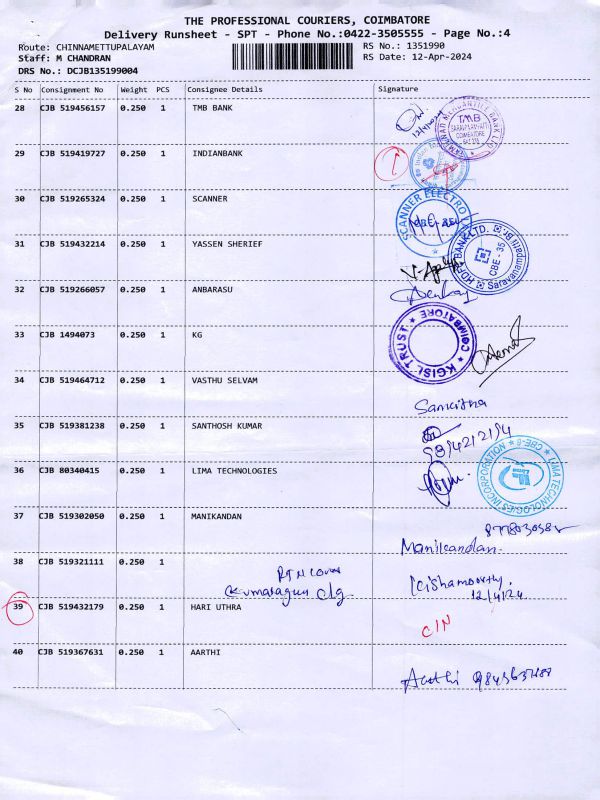 THE PROFESSIONAL COURIERS, COIMBATORE
Delivery Runsheet - SPT - Phone No.:0422-3505555 - Page No.:4
Route: CHINNAMETTUPALAYAM RS No.: 1351990
Staff: M CHANDRAN RS Date: 12-Apr-2024
DRS No.: DCJB135199004
S No Consignment No Weight PCS Consignee Details Signature
28 CJB 519456157 0.250 1 TMB BANK
12/4/2024
TMB
COIMBATORE
29 CJB 519419727 0.250 1 INDIANBANK
30 CJB 519265324 0.250 1 SCANNER
SCANNER ELECTRO
31 CJB 519432214 0.250 1 YASSEN SHERIEF
HDFC BANK LTD.
CBE - 35
Saravanampatti Br.
32 CJB 519266057 0.250 1 ANBARASU
33 CJB 1494073 0.250 1 KG
KGISL TRUST * COIMBATORE *
34 CJB 519464712 0.250 1 VASTHU SELVAM
35 CJB 519381238 0.250 1 SANTHOSH KUMAR
36 CJB 80340415 0.250 1 LIMA TECHNOLOGIES
LIMA TECHNOLOGIES INCORPORATION * CBE-6 *
37 CJB 519302050 0.250 1 MANIKANDAN
Manikandan
38 CJB 519321111 0.250 1
RTN Cover
Kumaraguru Clg
12/4/24
39 CJB 519432179 0.250 1 HARI UTHRA
C/N
40 CJB 519367631 0.250 1 AARTHI
Aarthi